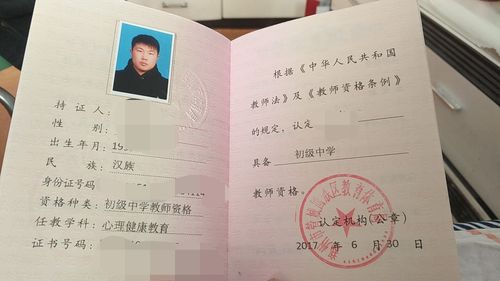 持证人:
性别:
出生年月:19
民族:汉族
身份证号码:
资格种类:初级中学教师资格
任教学科:心理健康教育
证书号码:
根据《中华人民共和国
教师法》及《教师资格条例》
的规定,认定
具备 初级中学
教师资格。
认定机构(公章)
2017 年 6 月 30 日